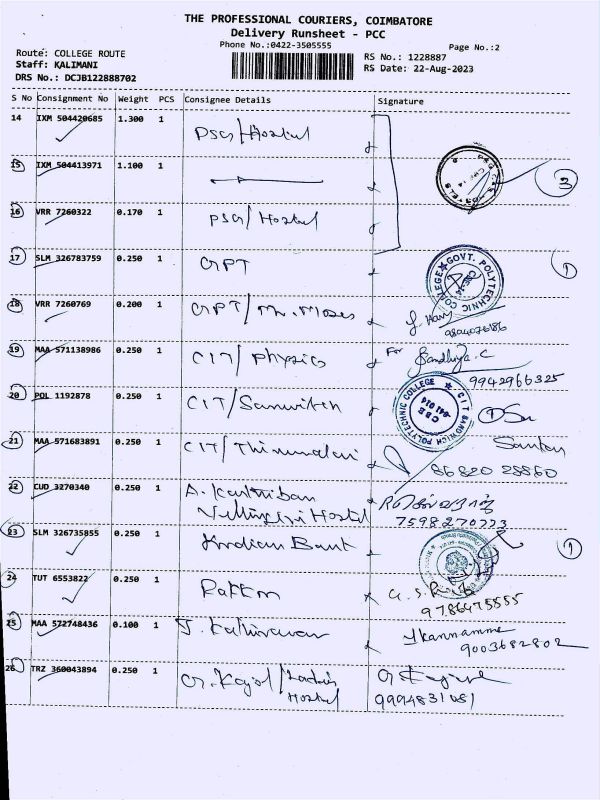 THE PROFESSIONAL COURIERS, COIMBATORE
Delivery Runsheet - PCC
Phone No.:0422-3505555
Page No.:2
Route: COLLEGE ROUTE
Staff: KALIMANI
DRS No.: DCJB122888702
RS No.: 1228887
RS Date: 22-Aug-2023
S No Consignment No Weight PCS Consignee Details Signature
14 IXM 504420685 1.300 1 PSG/Hostel
15 IXM 504413971 1.100 1
3
16 VRR 7260322 0.170 1 PSG/Hostel
17 SLM 326783759 0.250 1 GPT
GOVT. POLYTECHNIC COLLEGE
1
18 VRR 7260769 0.200 1 GPT/Mr. Moses
19 MAA 571138986 0.250 1 CIT/Physics For Sandhiya.C
9942966325
20 POL 1192878 0.250 1 CIT/Sanwith
CIT SANDWICH POLYTECHNIC COLLEGE
CBE
641 014
21 MAA 571683891 0.250 1 CIT/Thirumalai
86820 28860
22 CUD 3270340 0.250 1 A. Kathiban
Hostel
7598270773
23 SLM 326735855 0.250 1 Indian Bank
1
24 TUT 6553822 0.250 1
9786475555
25 MAA 572748436 0.100 1 J. Kathiravan Jkannamma
9003682802
26 TRZ 360043894 0.250 1 G. Kayal/Ladies
Hostel
9994831081